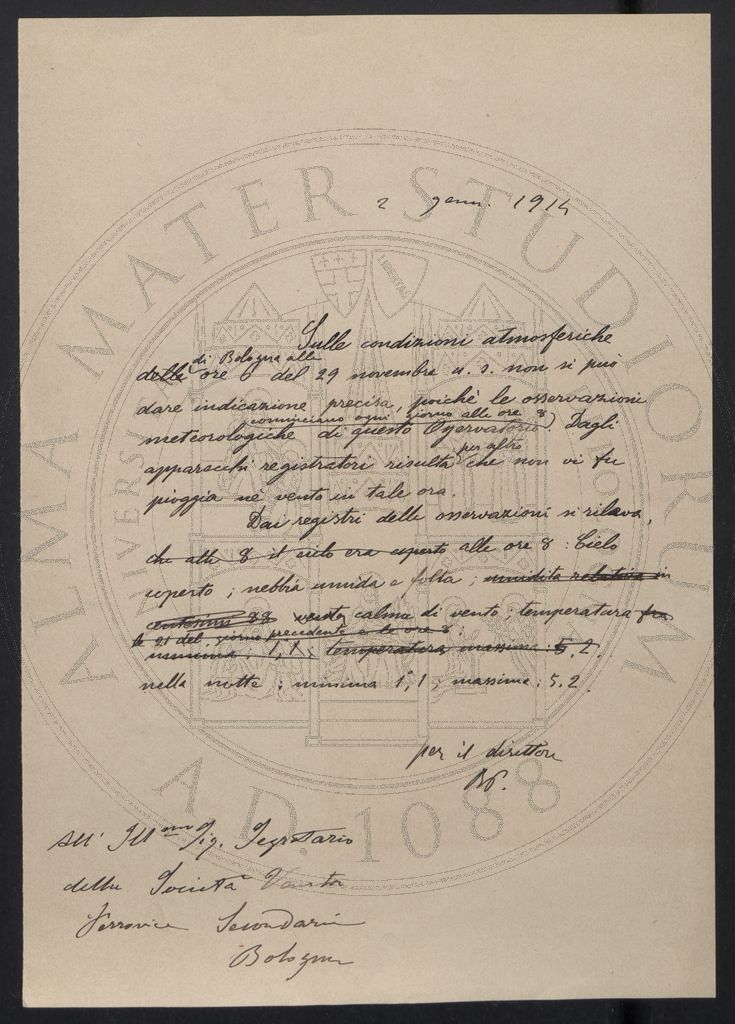 2 genn. 1914
Sulle condizioni atmosferiche
di Bologna alle
delle ore 6 del 29 novembre u. s. non si può
dare indicazione precisa, poichè le osservazioni
cominciano ogni giorno alle ore 8
meteorologiche di questo Osservatorio. Dagli
per altro
apparecchi registratori risulta che non vi fu
pioggia nè vento in tale ora.
Dai registri delle osservazioni si rileva,
che alle 8 il cielo era coperto alle ore 8: Cielo
coperto; nebbia umida e folta; umidità relativa in
centesimi 88 vento calma di vento; temperatura fra
le 21 del giorno precedente e le ore 8:
minima: 1,1; temperatura massima: 5,2.
nella notte: minima 1°,1; massima: 5.2.
per il direttore
All' Ill.mo Sig. Segretario
della Società
Ferrovie Secondarie
Bologna
ALMA MATER STUDIORUM
A.D. 1088
LIBERTAS